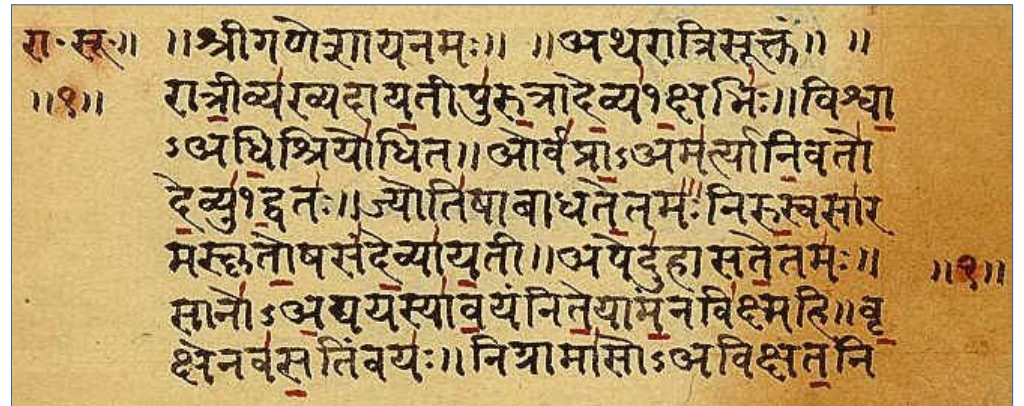 रा॰ सू॰॥ ॥श्रीगणेशायनमः॥ ॥अथरात्रिसूक्तं॥ ॥
॥१॥ रात्रीव्यख्यदायतीपुरुत्रादेव्य१क्षभिः॥विश्वा
ऽअधिश्रियोधित॥ओर्वप्राऽअमर्त्यानिवतो
देव्यु१द्वतः॥ज्योतिषाबाधतेतमः॥निरुस्वसार
मस्कृतोषसंदेव्यायती॥अपेदुहासतेतमः॥ ॥१॥
सानोऽअद्ययस्यावयंनितेयामन्नविक्ष्महि॥वृ
क्षेनवसतिंवयः॥निग्रामासोऽअविक्षतनि